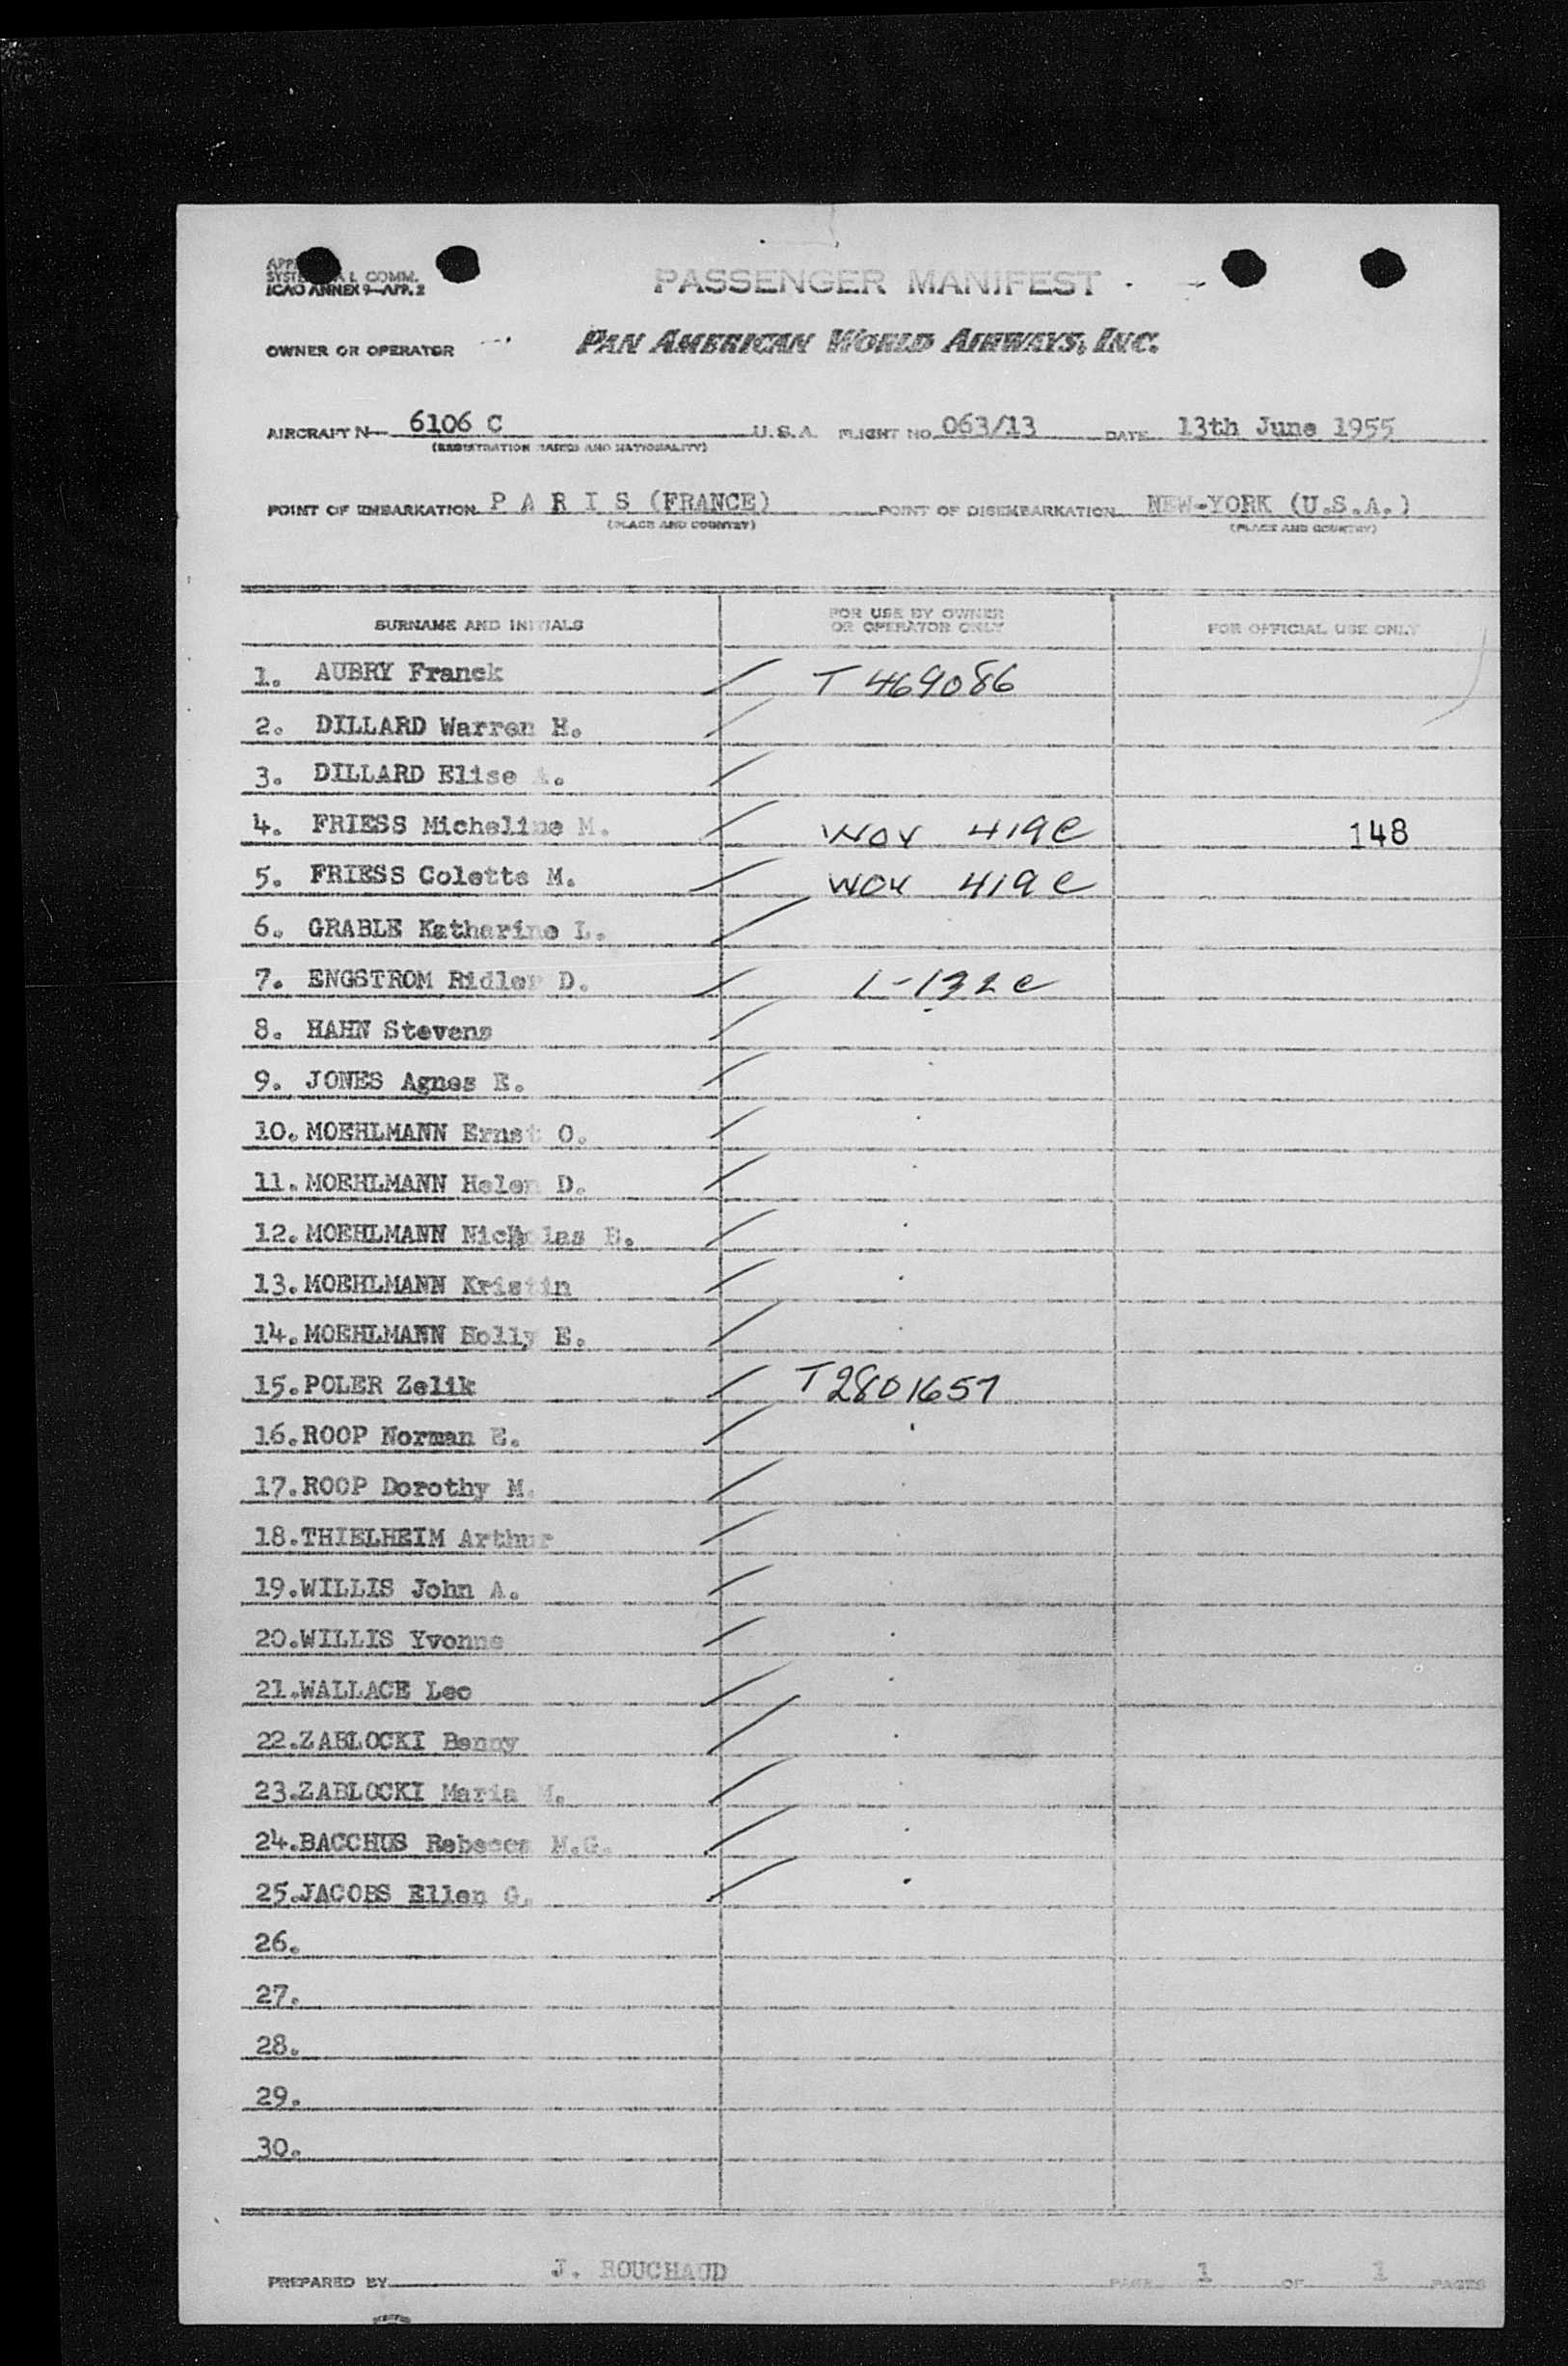 PASSENGER MANIFEST
COMM.
ICAO ANNEX 9—APP. 2
OWNER OR OPERATOR PAN AMERICAN WORLD AIRWAYS, INC.
AIRCRAFT N— 6106 C U.S.A. FLIGHT NO. 063/13 DATE 13th June 1955
(REGISTRATION MARKS AND NATIONALITY)
POINT OF EMBARKATION P A R I S (FRANCE) POINT OF DISEMBARKATION NEW-YORK (U.S.A.)
(PLACE AND COUNTRY) (PLACE AND COUNTRY)
SURNAME AND INITIALS FOR USE BY OWNER OR OPERATOR ONLY FOR OFFICIAL USE ONLY
1. AUBRY Franck T 469086
2. DILLARD Warren H.
3. DILLARD Elise
4. FRIESS Micheline M. 419C 148
5. FRIESS Colette M. 419C
6. GRABLE Katharine L.
7. ENGSTROM Ridler D. L-132C
8. HAHN Stevens
9. JONES Agnes E.
10. MOEHLMANN Ernst O.
11. MOEHLMANN Helen D.
12. MOEHLMANN Nicholas E.
13. MOEHLMANN Kristin
14. MOEHLMANN Holly E.
15. POLER Zelik T2801657
16. ROOP Norman E.
17. ROOP Dorothy M.
18. THIELHEIM Arthur
19. WILLIS John A.
20. WILLIS Yvonne
21. WALLACE Leo
22. ZABLOCKI Benny
23. ZABLOCKI Maria M.
24. BACCHUS Rebecca M.G.
25. JACOBS Ellen G.
26.
27.
28.
29.
30.
PREPARED BY J. ROUCHAUD PAGE 1 OF 1 PAGES